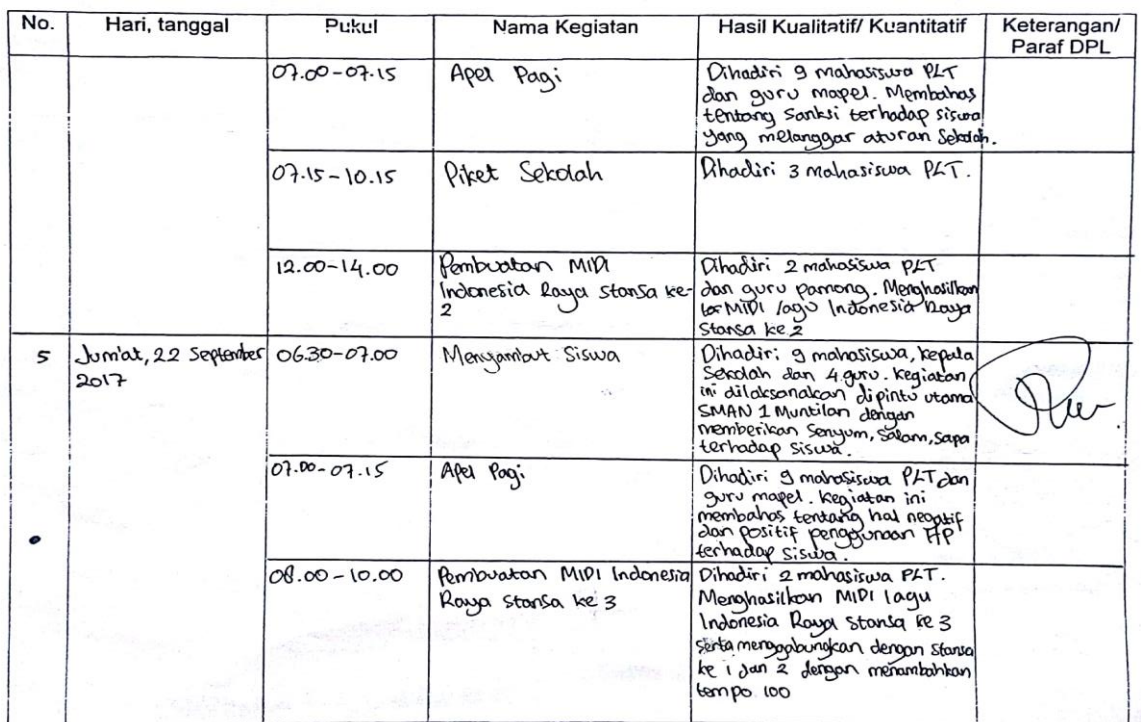 No. Hari, tanggal Pukul Nama Kegiatan Hasil Kualitatif/ Kuantitatif Keterangan/
Paraf DPL
07.00-07.15 Apel Pagi Dihadiri 9 mahasiswa PLT
dan guru mapel. Membahas
tentang Sanksi terhadap siswa
yang melanggar aturan Sekolah.
07.15-10.15 Piket Sekolah Dihadiri 3 mahasiswa PLT.
12.00-14.00 Pembuatan MIDI Dihadiri 2 mahasiswa PLT
Indonesia Raya Stansa ke- dan guru pamong. Menghasilkan
2 MIDI lagu Indonesia Raya
Stansa ke 2
5 Jum'at, 22 September 06.30-07.00 Menyambut Siswa Dihadiri 9 mahasiswa, kepala
2017 Sekolah dan 4 guru. kegiatan
ini dilaksanakan dipintu utama
SMAN 1 Muntilan dengan
memberikan Senyum, Salam, Sapa
terhadap siswa.
07.00-07.15 Apel Pagi Dihadiri 9 mahasiswa PLT dan
guru mapel. kegiatan ini
membahas tentang hal negatif
dan positif penggunaan HP
terhadap siswa.
08.00-10.00 Pembuatan MIDI Indonesia Dihadiri 2 mahasiswa PLT.
Raya Stansa ke 3 Menghasilkan MIDI lagu
Indonesia Raya Stansa ke 3
serta menggabungkan dengan stansa
ke 1 dan 2 dengan menambahkan
tempo 100